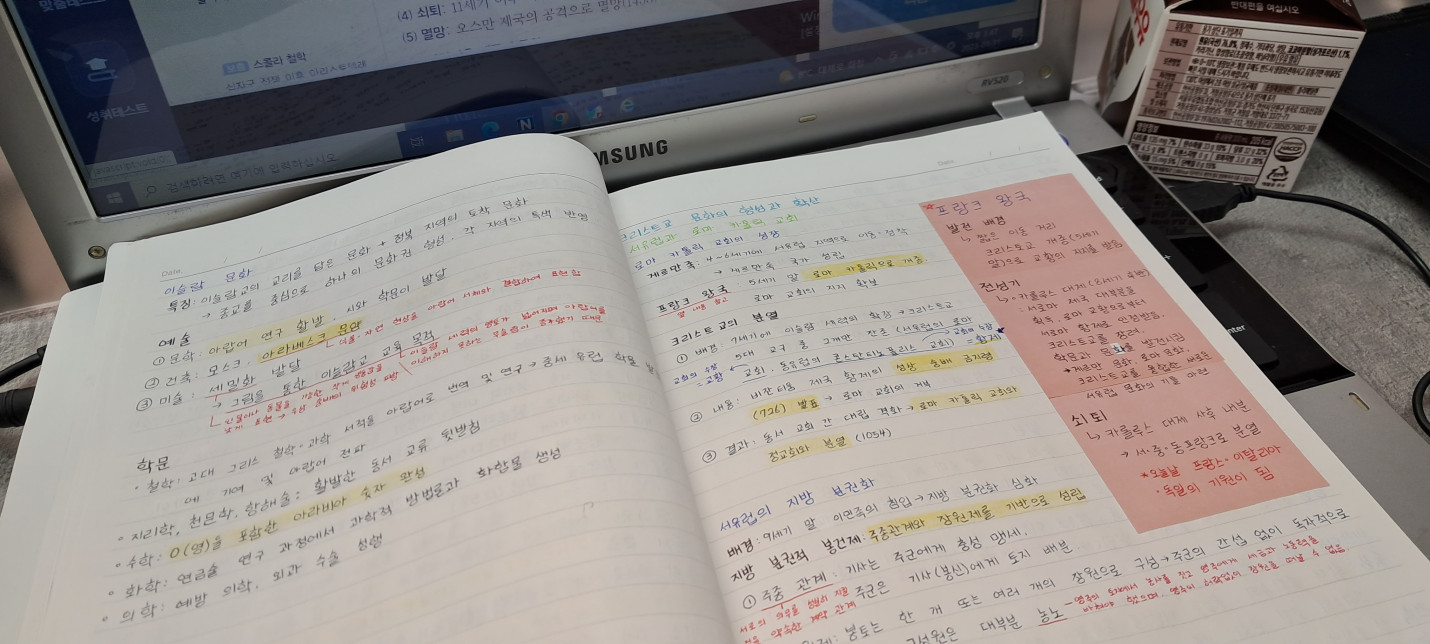 (4) 쇠퇴: 11세기
(5) 멸망: 오스만 제국의 공격으로 멸망
스콜라 철학
성취테스트
검색하려면 여기에 입력하십시오.
RV520
SAMSUNG
반대편을 여십시오
HACCP
Enter
Date
이슬람 문화
특징: 이슬람교의 교리를 담은 문화 + 정복 지역의 토착 문화
→ 종교를 중심으로 하나의 문화권 형성, 각 지역의 특색 반영
예술
① 문학: 아랍어 연구 활발, 시와 학문이 발달
② 건축: 모스크, 아라베스크 문양
식물, 자연 현상을 아랍어 서체와 결합하여 표현함
③ 미술: 세밀화 발달
→ 그림을 통한 이슬람교 교육 목적
학문
· 철학: 고대 그리스 철학·과학 서적을 아랍어로 번역 및 연구 → 중세 유럽 학문 발
에 기여 및 아랍어 전파
· 지리학, 천문학, 항해술: 활발한 동서 교류 뒷받침
· 수학: 0(영)을 포함한 아라비아 숫자 완성
· 화학: 연금술 연구 과정에서 과학적 방법론과 화합물 생성
· 의학: 예방 의학, 외과 수술 성행
Date
크리스트교 문화의 형성과 확산
서유럽과 로마 카톨릭 교회
로마 카톨릭 교회의 성장
게르만족: 4-6세기에 서유럽 지역으로 이동·정착
→ 게르만족 국가 성립
프랑크 왕국 5세기 말 로마 카톨릭으로 개종
옆 내용 참고 로마 교회의 지지 확보
크리스트교의 분열
① 배경: 7세기에 이슬람 세력의 확장 → 크리스트교
5대 교구 중 2개만 잔존 (서유럽의 로마
교회, 동유럽의 콘스탄티노폴리스 교회)
교회의 수장
=교황
→ 교회의 수장
= 황제
② 내용: 비잔티움 제국 황제의 성상 숭배 금지령
(726) 발표 → 로마 교회의 거부
③ 결과: 동서 교회 간 대립 격화 → 로마 카톨릭 교회와
정교회와 분열 (1054)
서유럽의 지방 분권화
배경: 9세기 말 이민족의 침입 → 지방 분권화 심화
지방 분권적 봉건제: 주종관계와 장원제를 기반으로 성립
① 주종 관계: 기사는 주군에게 충성 맹세.
주군은 기사(봉신)에게 토지 배분.
서로의 의무를 성실히 지킬
것을 약속한 계약 관계
봉토는 한 개 또는 여러 개의 장원으로 구성 → 주군의 간섭 없이 독자적으로
대부분 농노
프랑크 왕국
발전 배경
↳ 짧은 이동 거리
크리스트교 개종(5세기
말)으로 교황의 지지를 받음
전성기
↳ 카롤루스 대제 (8세기 후반)
: 서로마 제국 대부분을
획득, 로마 교황으로부터
서로마 황제로 인정받음.
크리스트교를 전파,
학문과 문화를 발전시킴
→ 게르만 문화, 로마 문화,
크리스트교를 융합한 새로운
서유럽 문화의 기틀 마련
쇠퇴
↳ 카롤루스 대제 사후 내분
→ 서·중·동프랑크로 분열
*오늘날 프랑스·이탈리아
·독일의 기원이 됨